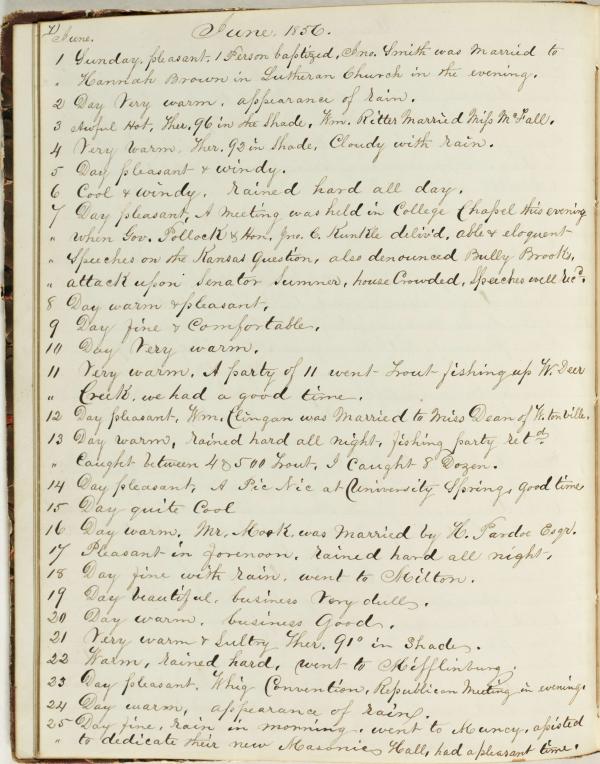 June. June. 1856.
1 Sunday, pleasant, 1 Person baptized, Jno. Smith was Married to
" Hannah Brown in Lutheran Church in the evening.
2 Day Very warm, appearance of rain.
3 Awful Hot, Ther. 96 in the Shade, Wm. Ritter Married Miss McFall.
4 Very warm, Ther. 92 in Shade, Cloudy with rain.
5 Day pleasant & windy.
6 Cool & windy, rained hard all day.
7 Day pleasant, A meeting was held in College Chapel this evening
" when Gov. Pollock & Hon. Jno. C. Kunkle deliv'd, able & eloquent
" Speeches on the Kansas Question, also denounced Bully Brooks,
" attack upon Senator Sumner, house Crowded, Speeches well rec'd.
8 Day warm & pleasant.
9 Day fine & Comfortable.
10 Day Very warm.
11 Very warm, A party of 11 went Trout fishing up W. Deer
" Creek, we had a good time.
12 Day pleasant, Wm. Clingan was Married to Miss Dean of
13 Day warm, rained hard all night, fishing party retd
" Caught between 4 & 500 Trout, I Caught 8 Dozen.
14 Day pleasant, A Pic Nic at University Springs good time
15 Day quite Cool
16 Day warm, Mr. Mook was Married by H. Pardoe Esqr.
17 Pleasant in forenoon, rained hard all night.
18 Day fine with rain, went to Milton.
19 Day beautiful, business Very dull.
20 Day warm, business Good.
21 Very warm & Sultry Ther. 91° in Shade.
22 Warm, rained hard, went to Mifflinburg.
23 Day pleasant, Whig Convention, Republican Meeting in evening.
24 Day warm, appearance of rain.
25 Day fine, rain in morning, went to Muncy, assisted
" to dedicate their new Masonic Hall, had a pleasant time.